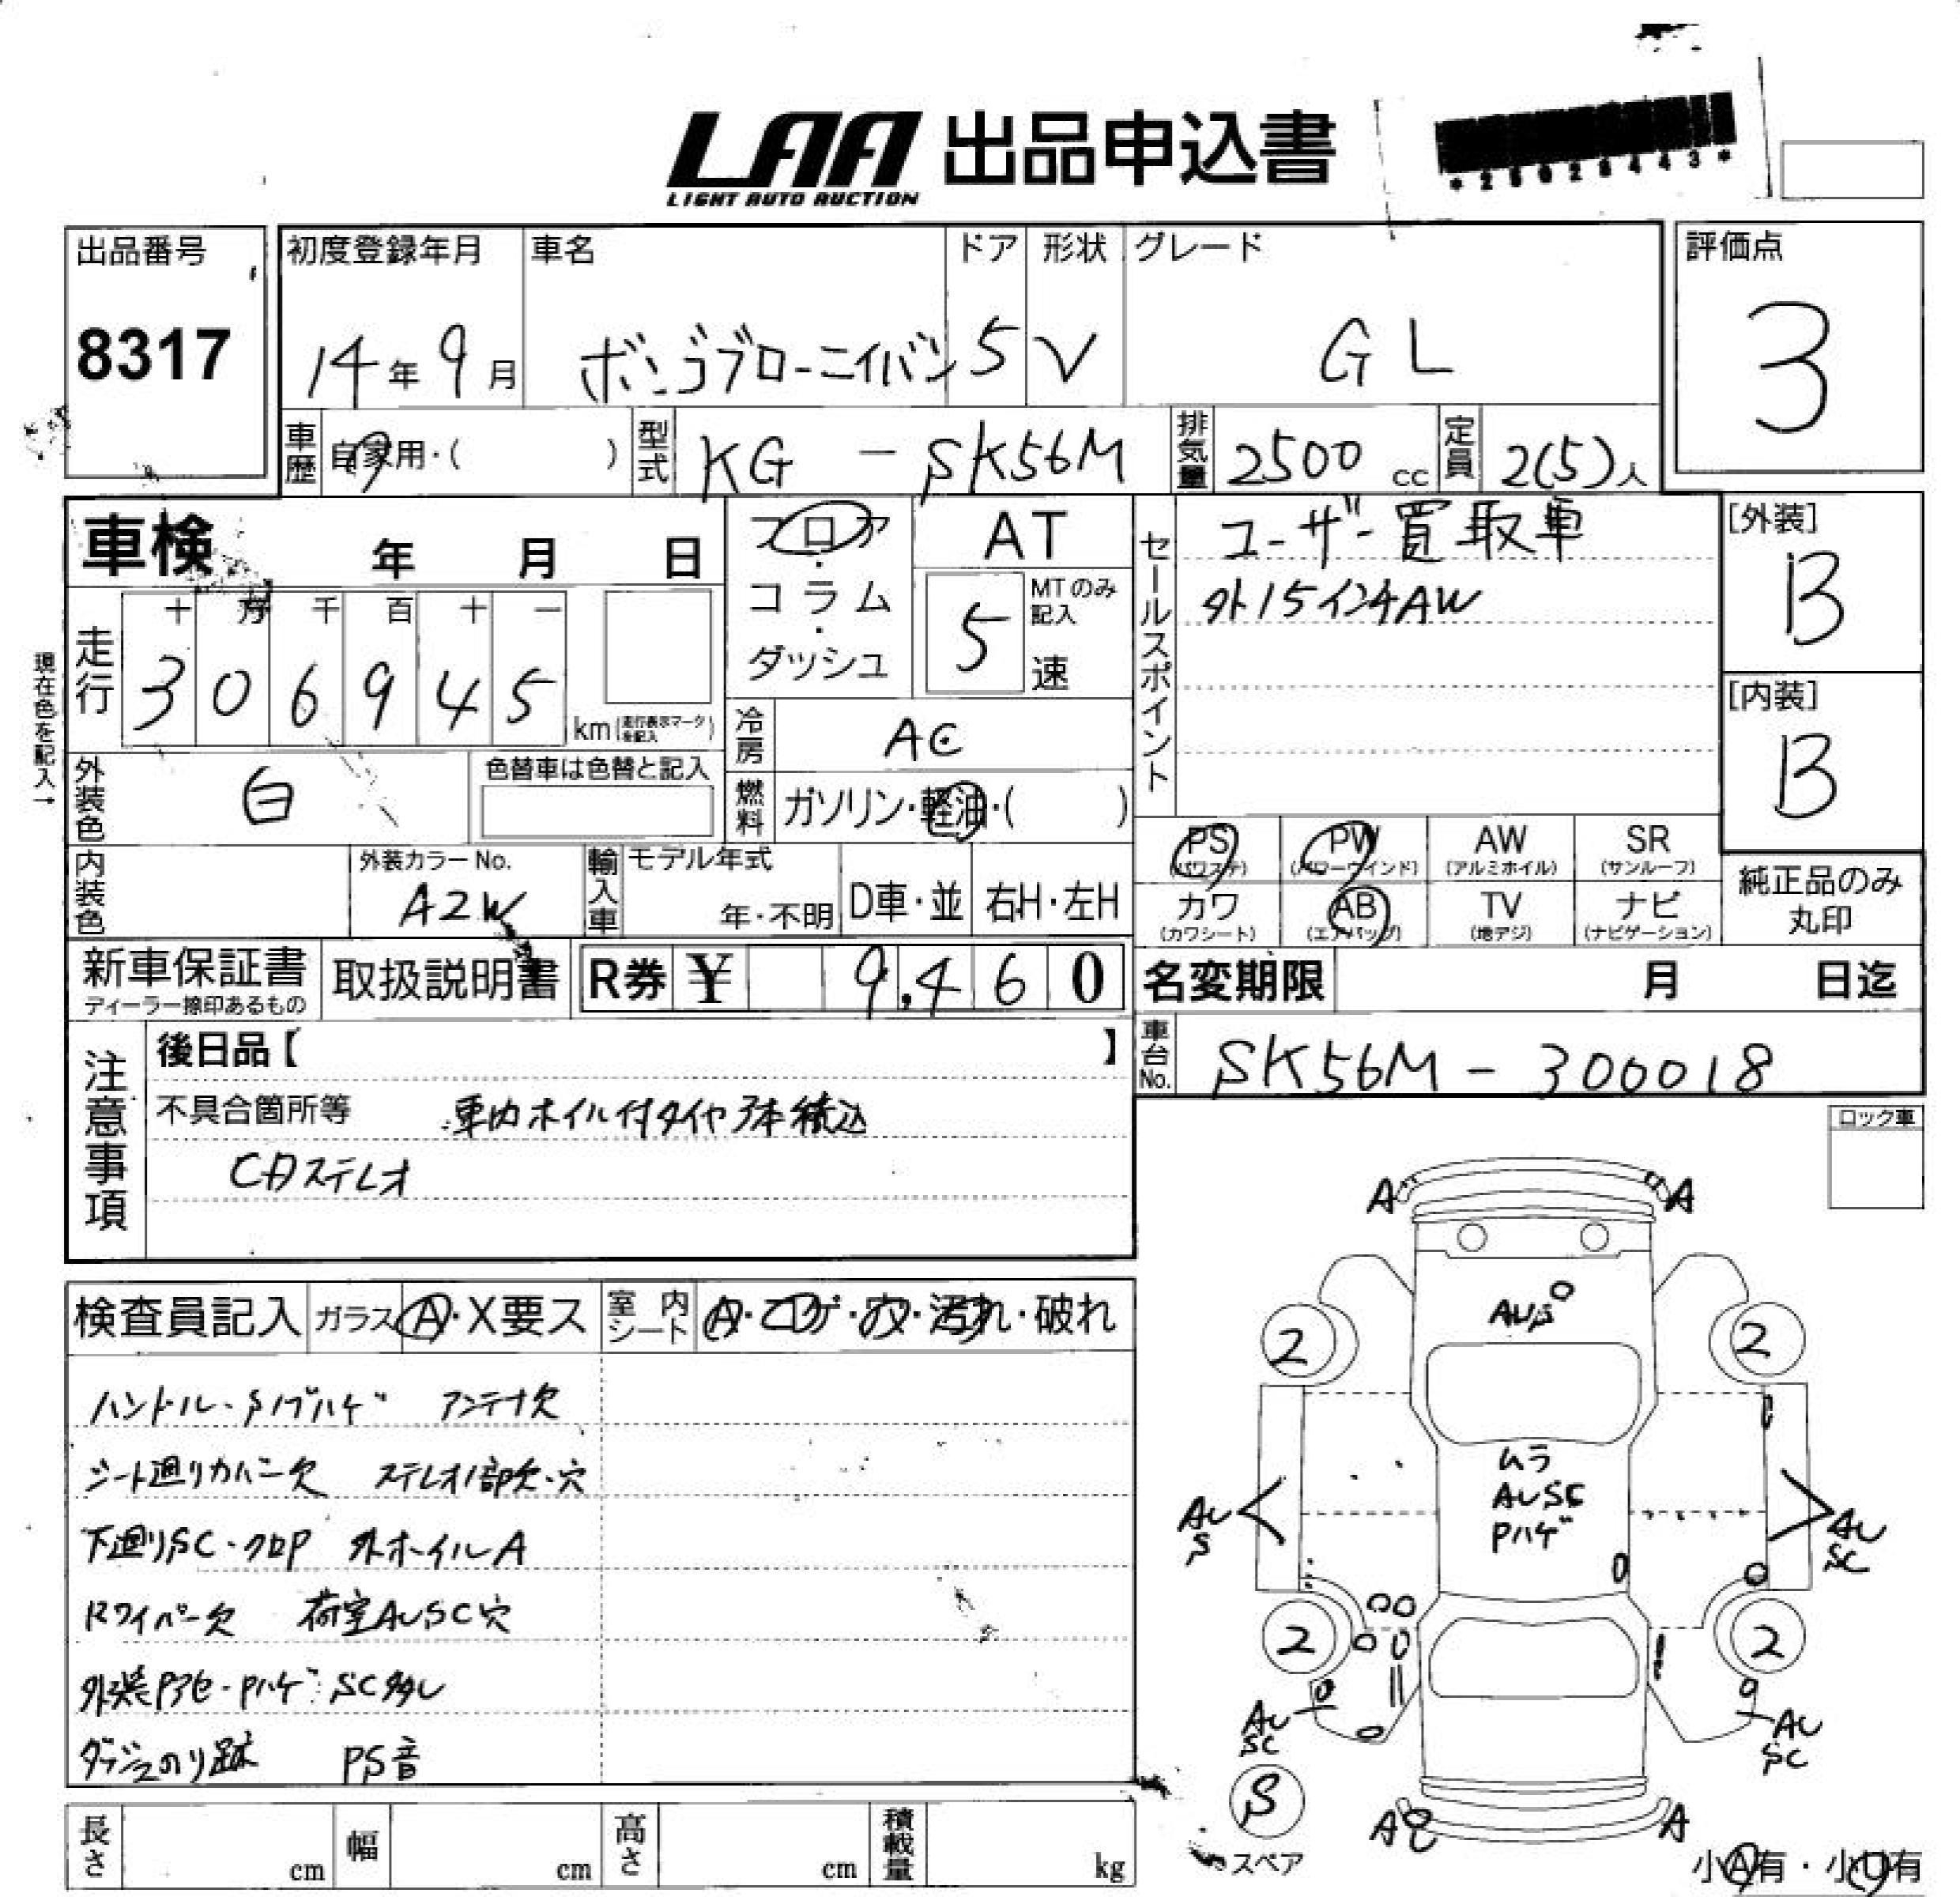 LAA 出品申込書
LIGHT AUTO AUCTION
*25028443*
出品番号
8317
初度登録年月
14年9月
車名
ボンゴブローニイバン
ドア
5
形状
V
グレード
GL
評価点
3
車歴
自家用・( )
型式
KG - SK56M
排気量
2500 cc
定員
2(5)人
車検 年 月 日
走行
十 万 千 百 十 一
3 0 6 9 4 5
km(走行表示マークを記入)
現在色を記入→
フロア・コラム・ダッシュ
AT
5
MTのみ記入
速
冷房
AC
燃料
ガソリン・軽油・( )
セールスポイント
ユーザー買取車
外15インチAW
[外装]
B
[内装]
B
外装色
白
色替車は色替と記入
内装色
外装カラーNo.
A2W
輸入車
モデル年式
年・不明
D車・並
右H・左H
PS (パワステ)
PW (パワーウインド)
AW (アルミホイル)
SR (サンルーフ)
カワ (カワシート)
AB (エアバッグ)
TV (地デジ)
ナビ (ナビゲーション)
純正品のみ丸印
新車保証書
ディーラー捺印あるもの
取扱説明書
R券 ¥ 9,460
名変期限 月 日迄
車台No.
SK56M - 300018
注意事項
後日品【 】
不具合箇所等 車内ホイル付タイヤ3本積込
CDステレオ
ロック車
検査員記入
ガラス A・X要ス
室内シート A・コゲ・穴・汚れ・破れ
ハンドル・Sノブハゲ アンテナ欠
シート廻りカバー欠 ステレオ1部欠・穴
下廻りSC・クロP 外ホイルA
Rワイパー欠 荷室AUSC穴
外装Pアセ・Pハゲ SC多し
ダッシュのり跡 PS音
A A
AUS
2 2
ムラ
AUSC
Pハゲ
AU
S
AU
SC
2 2
AU
SC
AU
SC
S
スペア
A A
小A有・小U有
長さ cm
幅 cm
高さ cm
積載量 kg